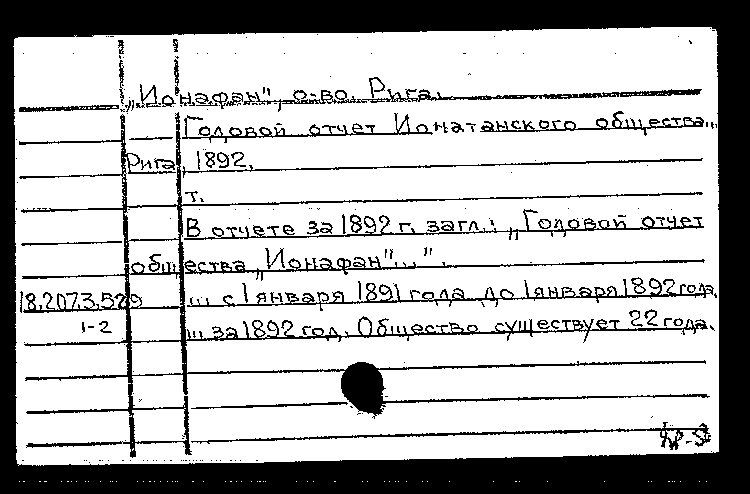 „Ионафан", о-во. Рига.
Годовой отчет Ионатанского общества...
Рига, 1892.
т.
В отчете за 1892 г. загл.: „Годовой отчет
общества „Ионафан"...".
18.207.3.529 ... с 1 января 1891 года до 1 января 1892 года.
1-2 ... за 1892 год. Общество существует 22 года.